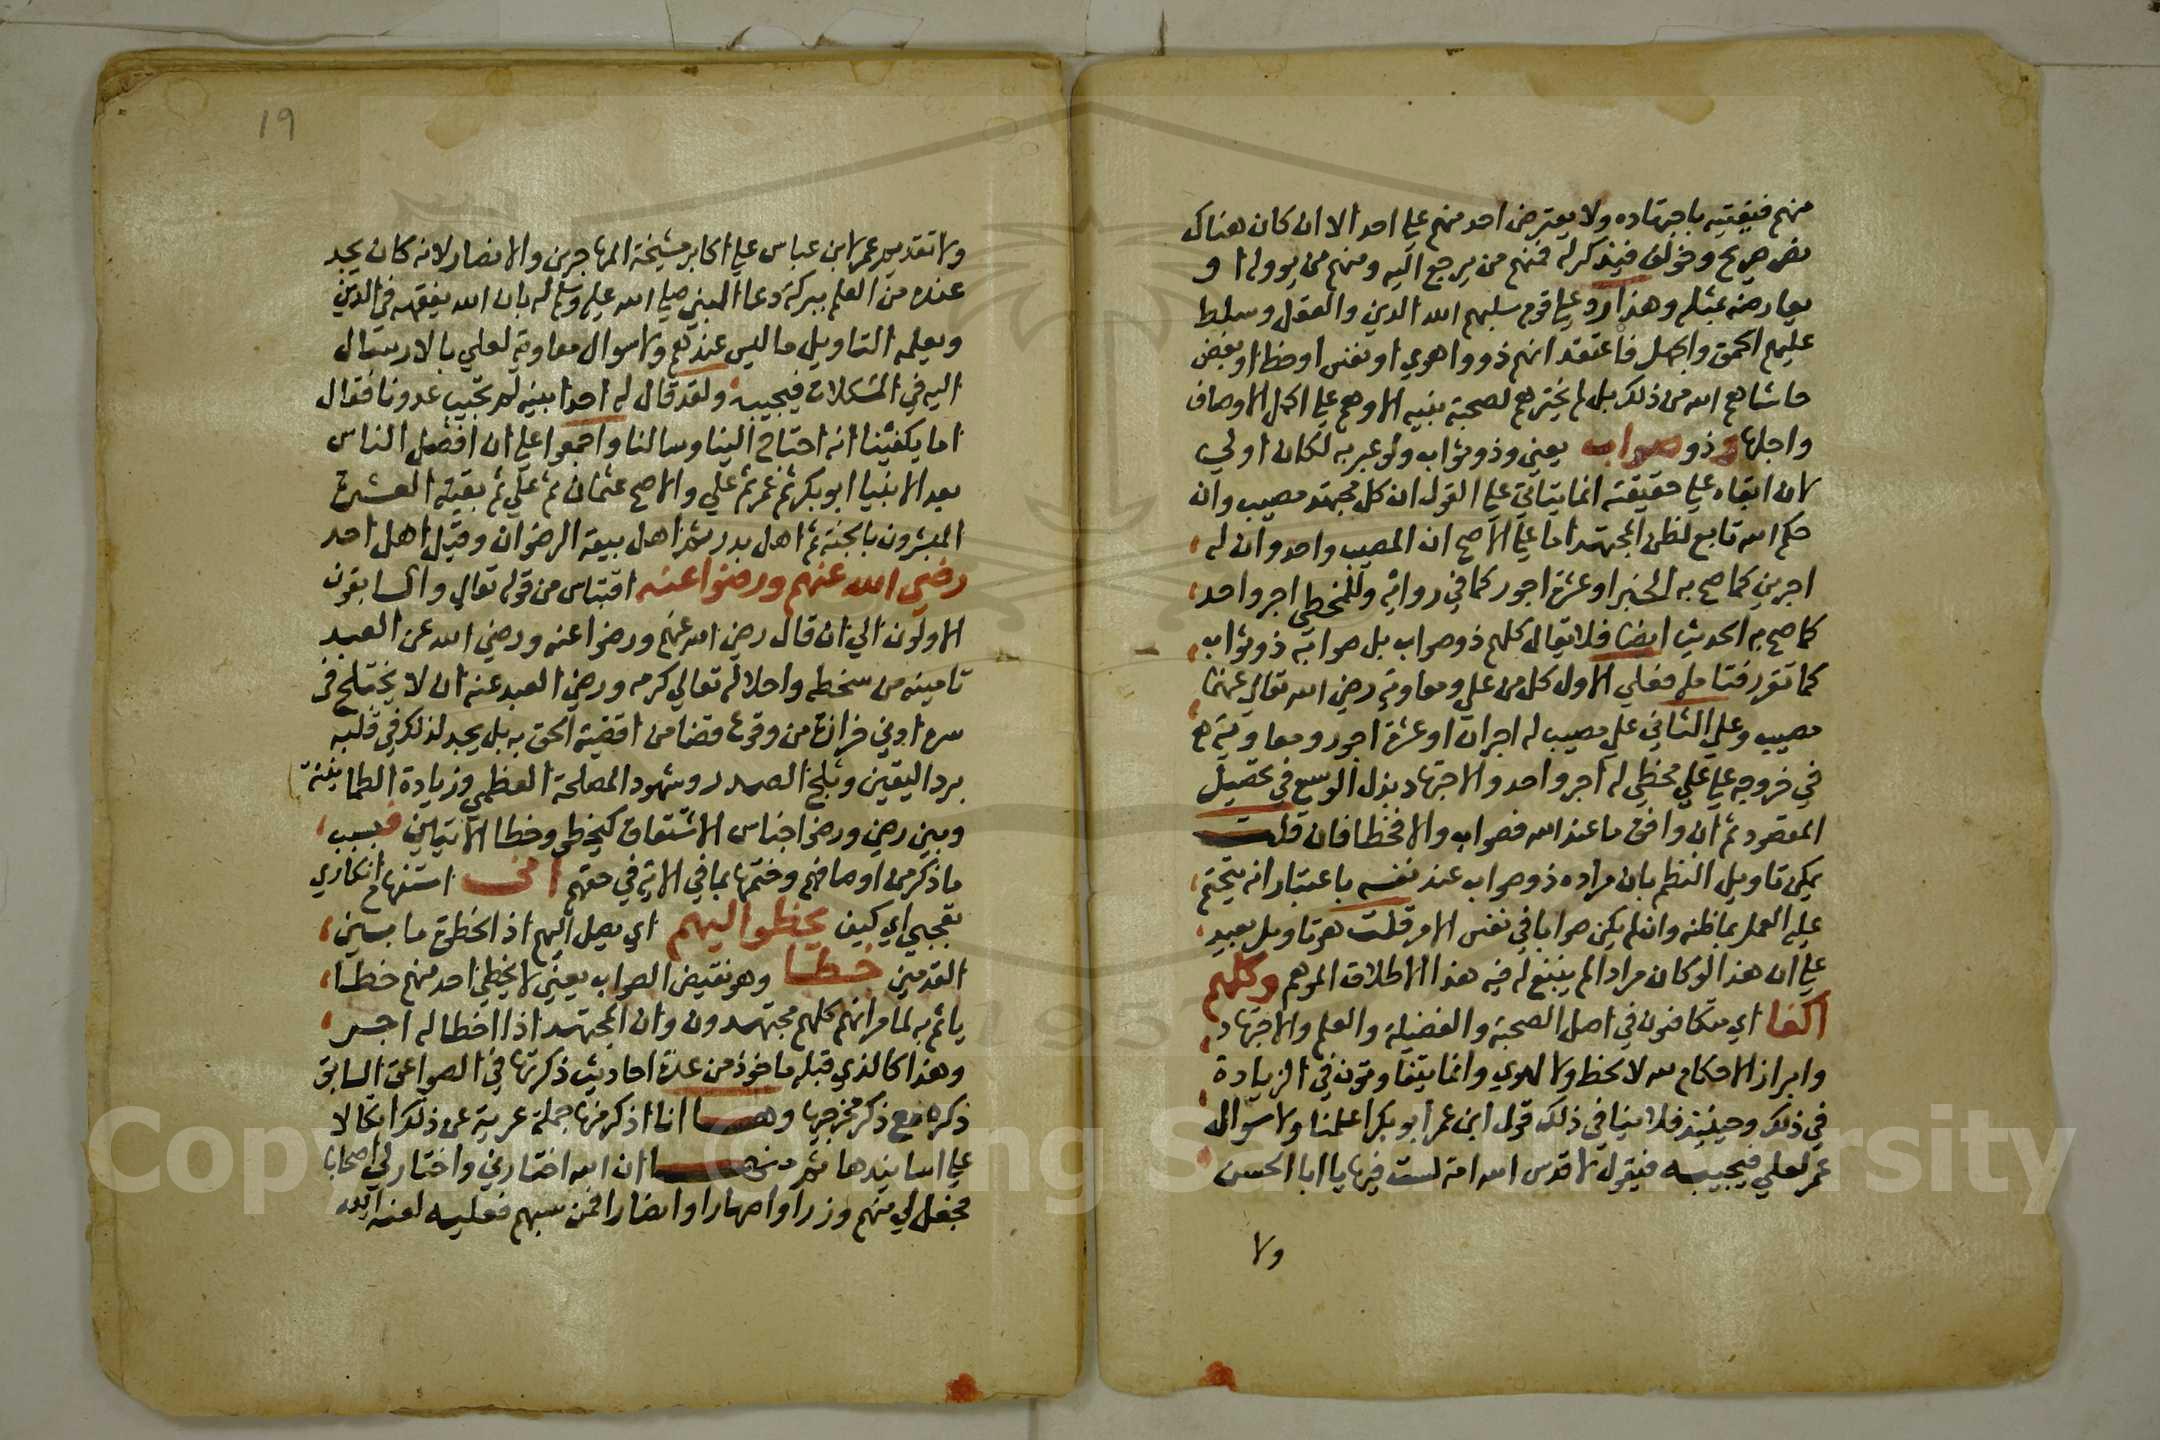 منهم فيفتيه باجتهاده ولا يعترض احد منهم علي احد الا ان كان هناك
نص صريح وخولف فيذكر له فمنهم من يرجع اليه ومنهم من يووله او
يعارضه بمثله وهذا رد علي قوم سلبهم الله الدين والعقل وسلط
عليهم الحمق والجهل فاعتقد انهم ذووا هوي او نفس او خطا او بغض
حاشاهم الله من ذلك بل لم يخترهم لصحبة نبيه الا وهم علي اكمل الاوصاف
واجلها وذو صواب يعني وذو ثواب ولو عبر به لكان اولي
لان ابقاه علي حقيقته انما يتاتي علي القول ان كل مجتهد مصيب وان
حكم الله تابع لظن المجتهد اما علي الاصح ان المصيب واحد وان له
اجرين كما صح به الخبر او عشرة اجور كما في رواية وللمخطي اجر واحد
كما صح به الحديث ايضا فلا يقال كلهم ذو صواب بل صوابه ذو ثواب
كما تقرر فتامله فعلي الاول كل من علي ومعاوية رضي الله تعالي عنهما
مصيب وعلي الثاني علي مصيب له اجران او عشرة اجور ومعاوية
في خروجه علي علي مخطي له اجر واحد والاجتهاد بذل الوسع في تحصيل
المقصود ثم ان وافق ما عند الله فصواب والا فخطا فان قلت
يمكن تاويل النظم بان مراده ذو صواب عند نفسه باعتبار انه يتحتم
عليه العمل بما ظنه وان لم يكن صوابا في نفس الامر قلت هو تاويل بعيد
علي ان هذا لو كان مرادا لم ينبغ له فيه هذا الاطلاق الموهم وكلهم
اكفا اي متكافئون في اصل الصحبة والفضيلة والعلم والاجتهاد
وابراز الاحكام لله لا لحظ ولا لهوي وانما يتفاوتون في الزيادة
في ذلك وحينئذ فلا ينافي ذلك قول ابن عمر ابو بكر اعلمنا ولا سوال
عمر لعلي فيجيبه فيقول لا قدس الله امة لست فيها يا ابا الحسن
ولا
19
ولا تقديم عمر ابن عباس علي اكابر مشيخة المهاجرين والانصار لانه كان يجد
عنده من العلم ببركة دعا النبي صلي الله عليه وسلم له بان الله يفقهه في الدين
ويعلمه التاويل ما ليس عندهم ولا سوال معاوية لعلي بالارسال
اليه في المشكلات فيجيبه ولقد قال له احد ابنيه لم تجيب عدونا فقال
اما يكفينا انه احتاج الينا وسالنا واجمعوا علي ان افضل الناس
بعد الانبيا ابو بكر ثم عمر ثم علي والاصح عثمان ثم علي ثم بقية العشرة
المبشرون بالجنة ثم اهل بدر ثم اهل بيعة الرضوان وقيل اهل احد
رضي الله عنهم ورضوا عنه اقتباس من قوله تعالي والسابقون
الاولون الي ان قال رضي الله عنهم ورضوا عنه ورضي الله عن العبد
تامينه من سخطه واحلاله تعالي كرمه ورضي العبد عنه ان لا يختلج في
سره ادني حزازة من وقوع قضا من اقضية الحق به بل يجد لذلك في قلبه
برد اليقين وثلج الصدر وشهود المصلحة العظمي وزيادة الطمانينة
وبين رضي ورضوا جناس الاشتقاق كيخطو وخطا الاتيين فبسبب
ما ذكر من اوصافهم وختمها بما في الاية في حقهم اني استفهام انكاري
تعجبي اي كيف يخطوا اليهم اي يصل اليهم اذ الخطوة ما بين
القدمين خطا وهو نقيض الصواب يعني لا يخطي احد منهم خطا
ياثم به لما مر انهم كلهم مجتهدون وان المجتهد اذا اخطا له اجر
وهذا كالذي قبله ماخوذ من عدة احاديث ذكرتها في الصواعق السابق
ذكره مع ذكر مخرجيها وها انا اذكر منها جملة عرية عن ذلك اتكالا
علي اسانيدها ثم منها ان الله اختارني واختار لي اصحابا
فجعل لي منهم وزرا واصهارا وانصارا فمن سبهم فعليه لعنة الله
Copyright © King Saud University
1957